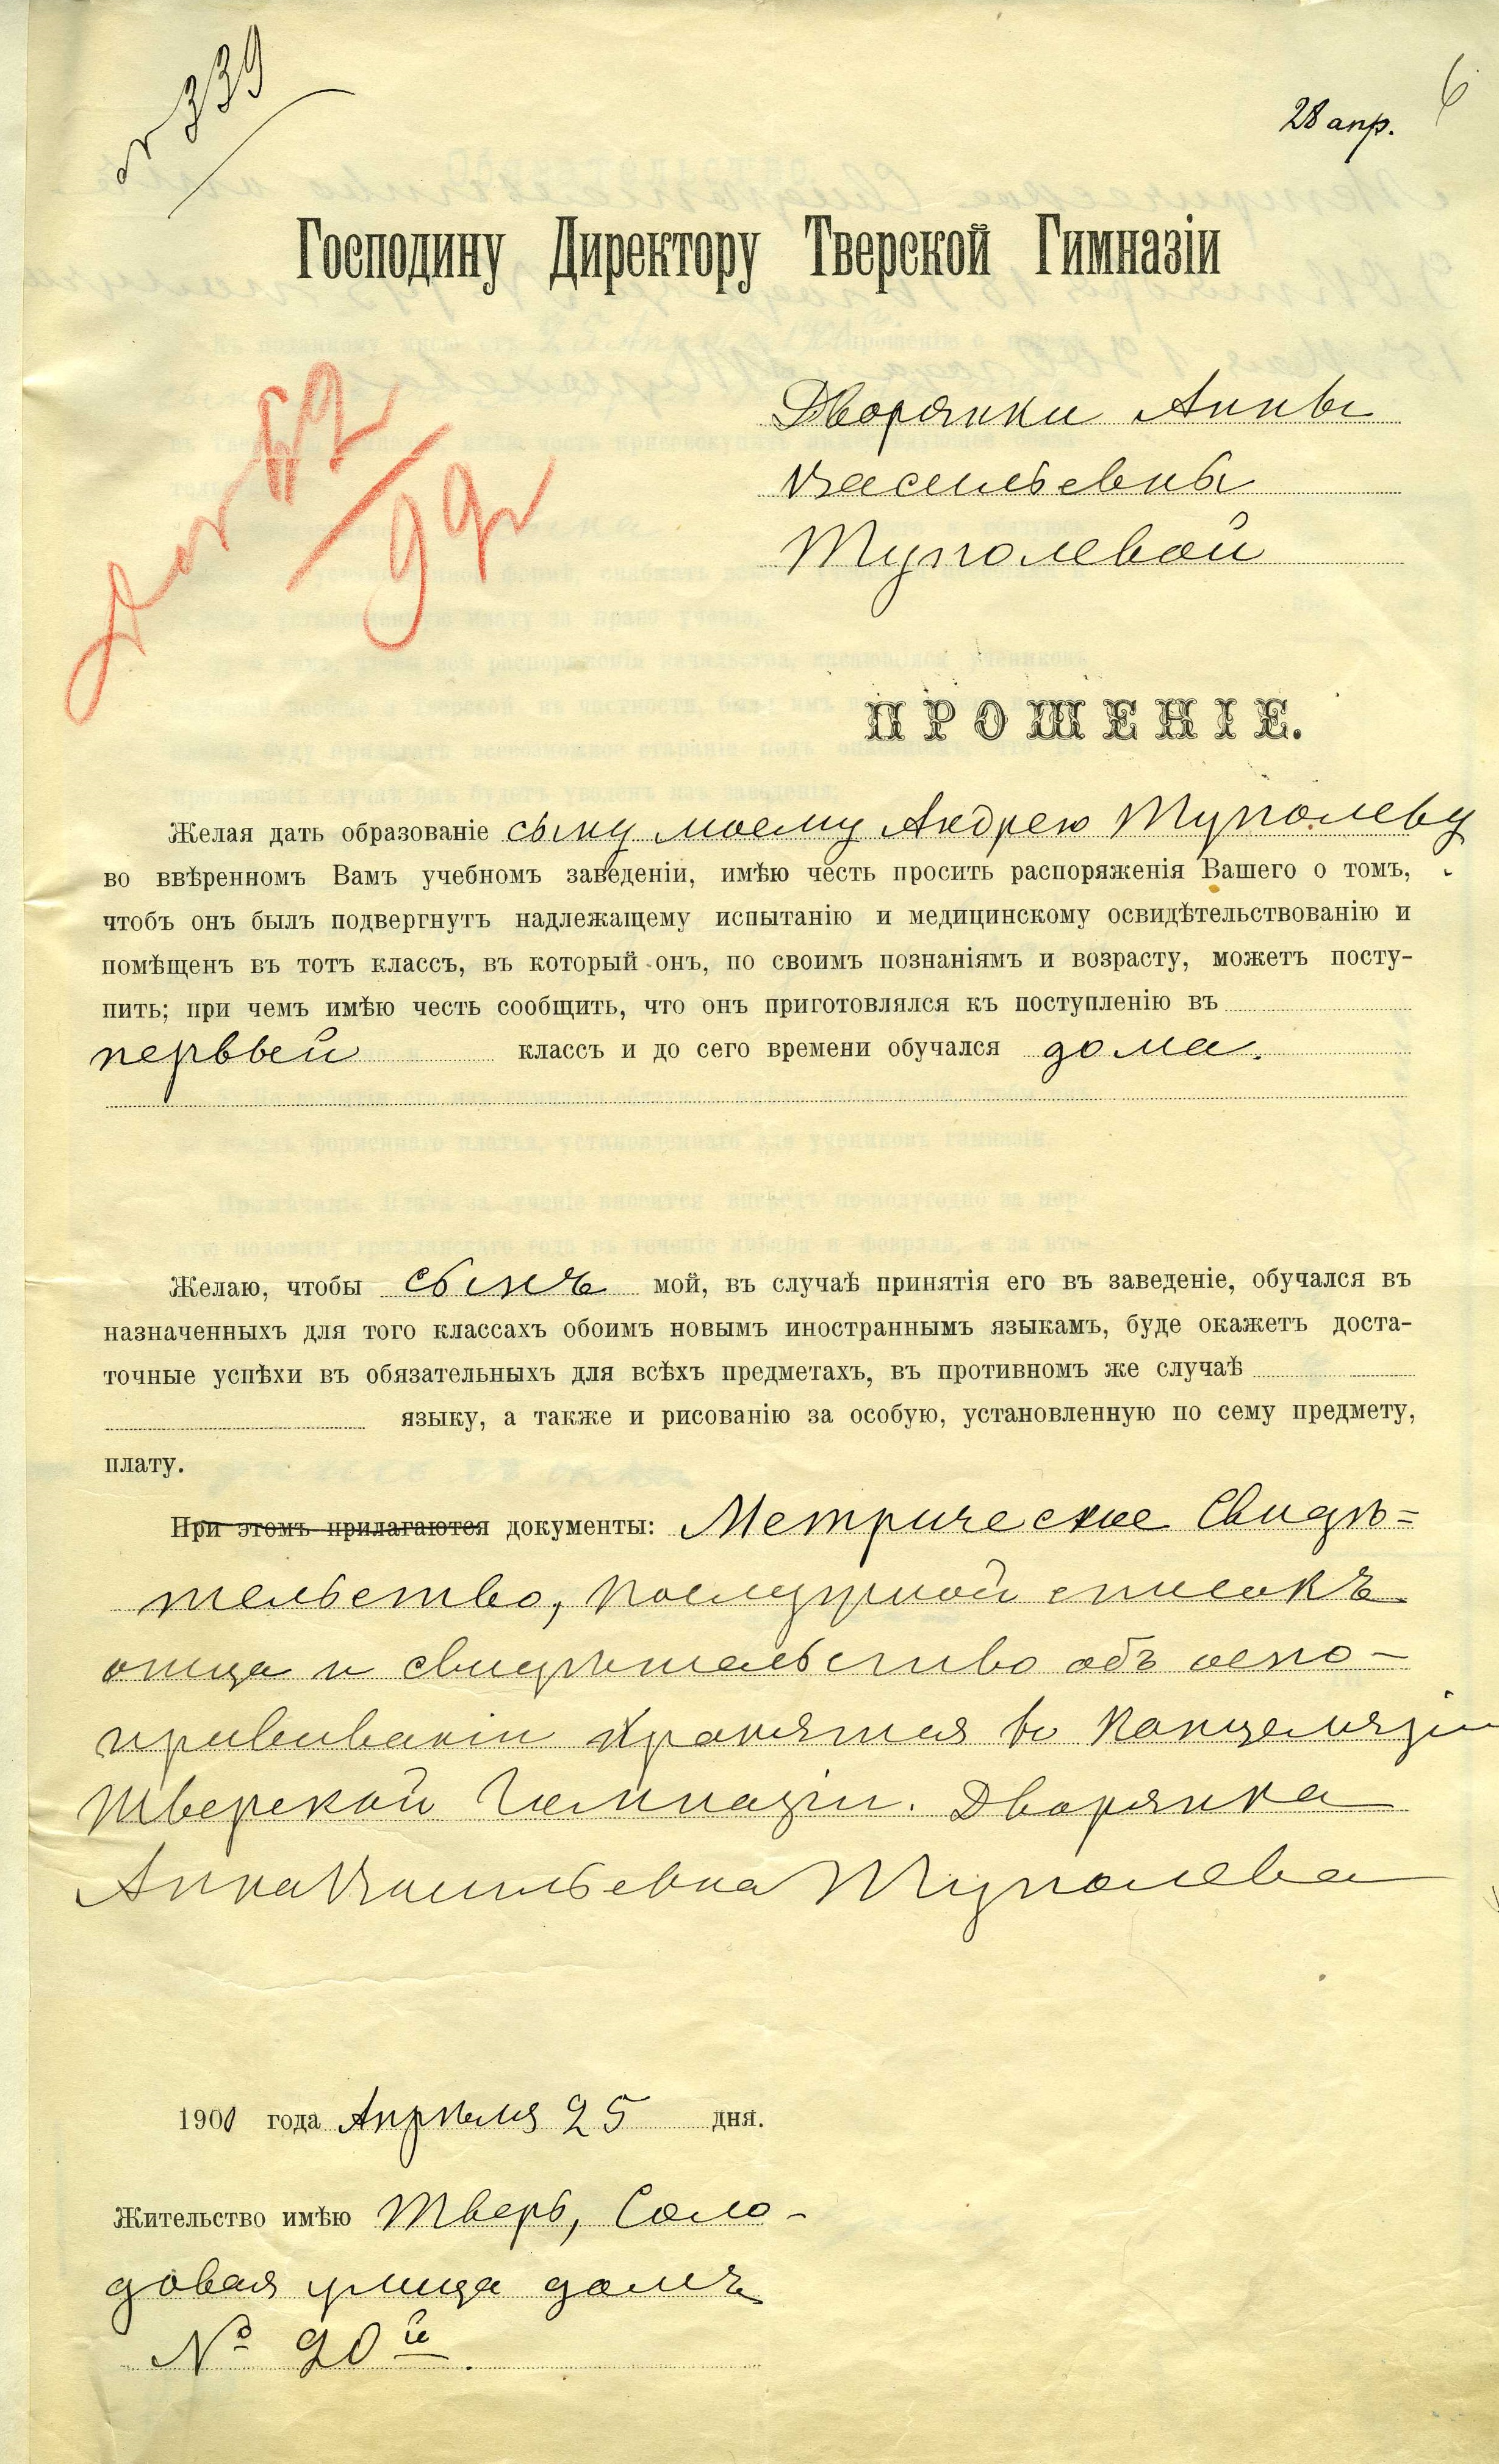 № 339
28 апр.
6
Господину Директору Тверской Гимназіи
Дворянки Анны
Васильевны
Туполевой
ПРОШЕНІЕ.
Желая дать образованіе сыну моему Андрею Туполеву
во ввѣренномъ Вамъ учебномъ заведеніи, имѣю честь просить распоряженія Вашего о томъ,
чтобъ онъ былъ подвергнутъ надлежащему испытанію и медицинскому освидѣтельствованію и
помѣщенъ въ тотъ классъ, въ который онъ, по своимъ познаніямъ и возрасту, можетъ посту-
пить; при чемъ имѣю честь сообщить, что онъ приготовлялся къ поступленію въ
первый классъ и до сего времени обучался дома.
Желаю, чтобы сынъ мой, въ случаѣ принятія его въ заведеніе, обучался въ
назначенныхъ для того классахъ обоимъ новымъ иностраннымъ языкамъ, буде окажетъ доста-
точные успѣхи въ обязательныхъ для всѣхъ предметахъ, въ противномъ же случаѣ
языку, а также и рисованію за особую, установленную по сему предмету,
плату.
При этомъ прилагаются документы: Метрическое Свидѣ=
тельство, послужной списокъ
отца и свидѣтельство объ оспо-
прививаніи хранятся въ Канцеляріи
Тверской Гимназіи. Дворянка
Анна Васильевна Туполева
1901 года Апрѣля 25 дня.
Жительство имѣю Тверь, Соло-
довая улица домъ
№ 20й.